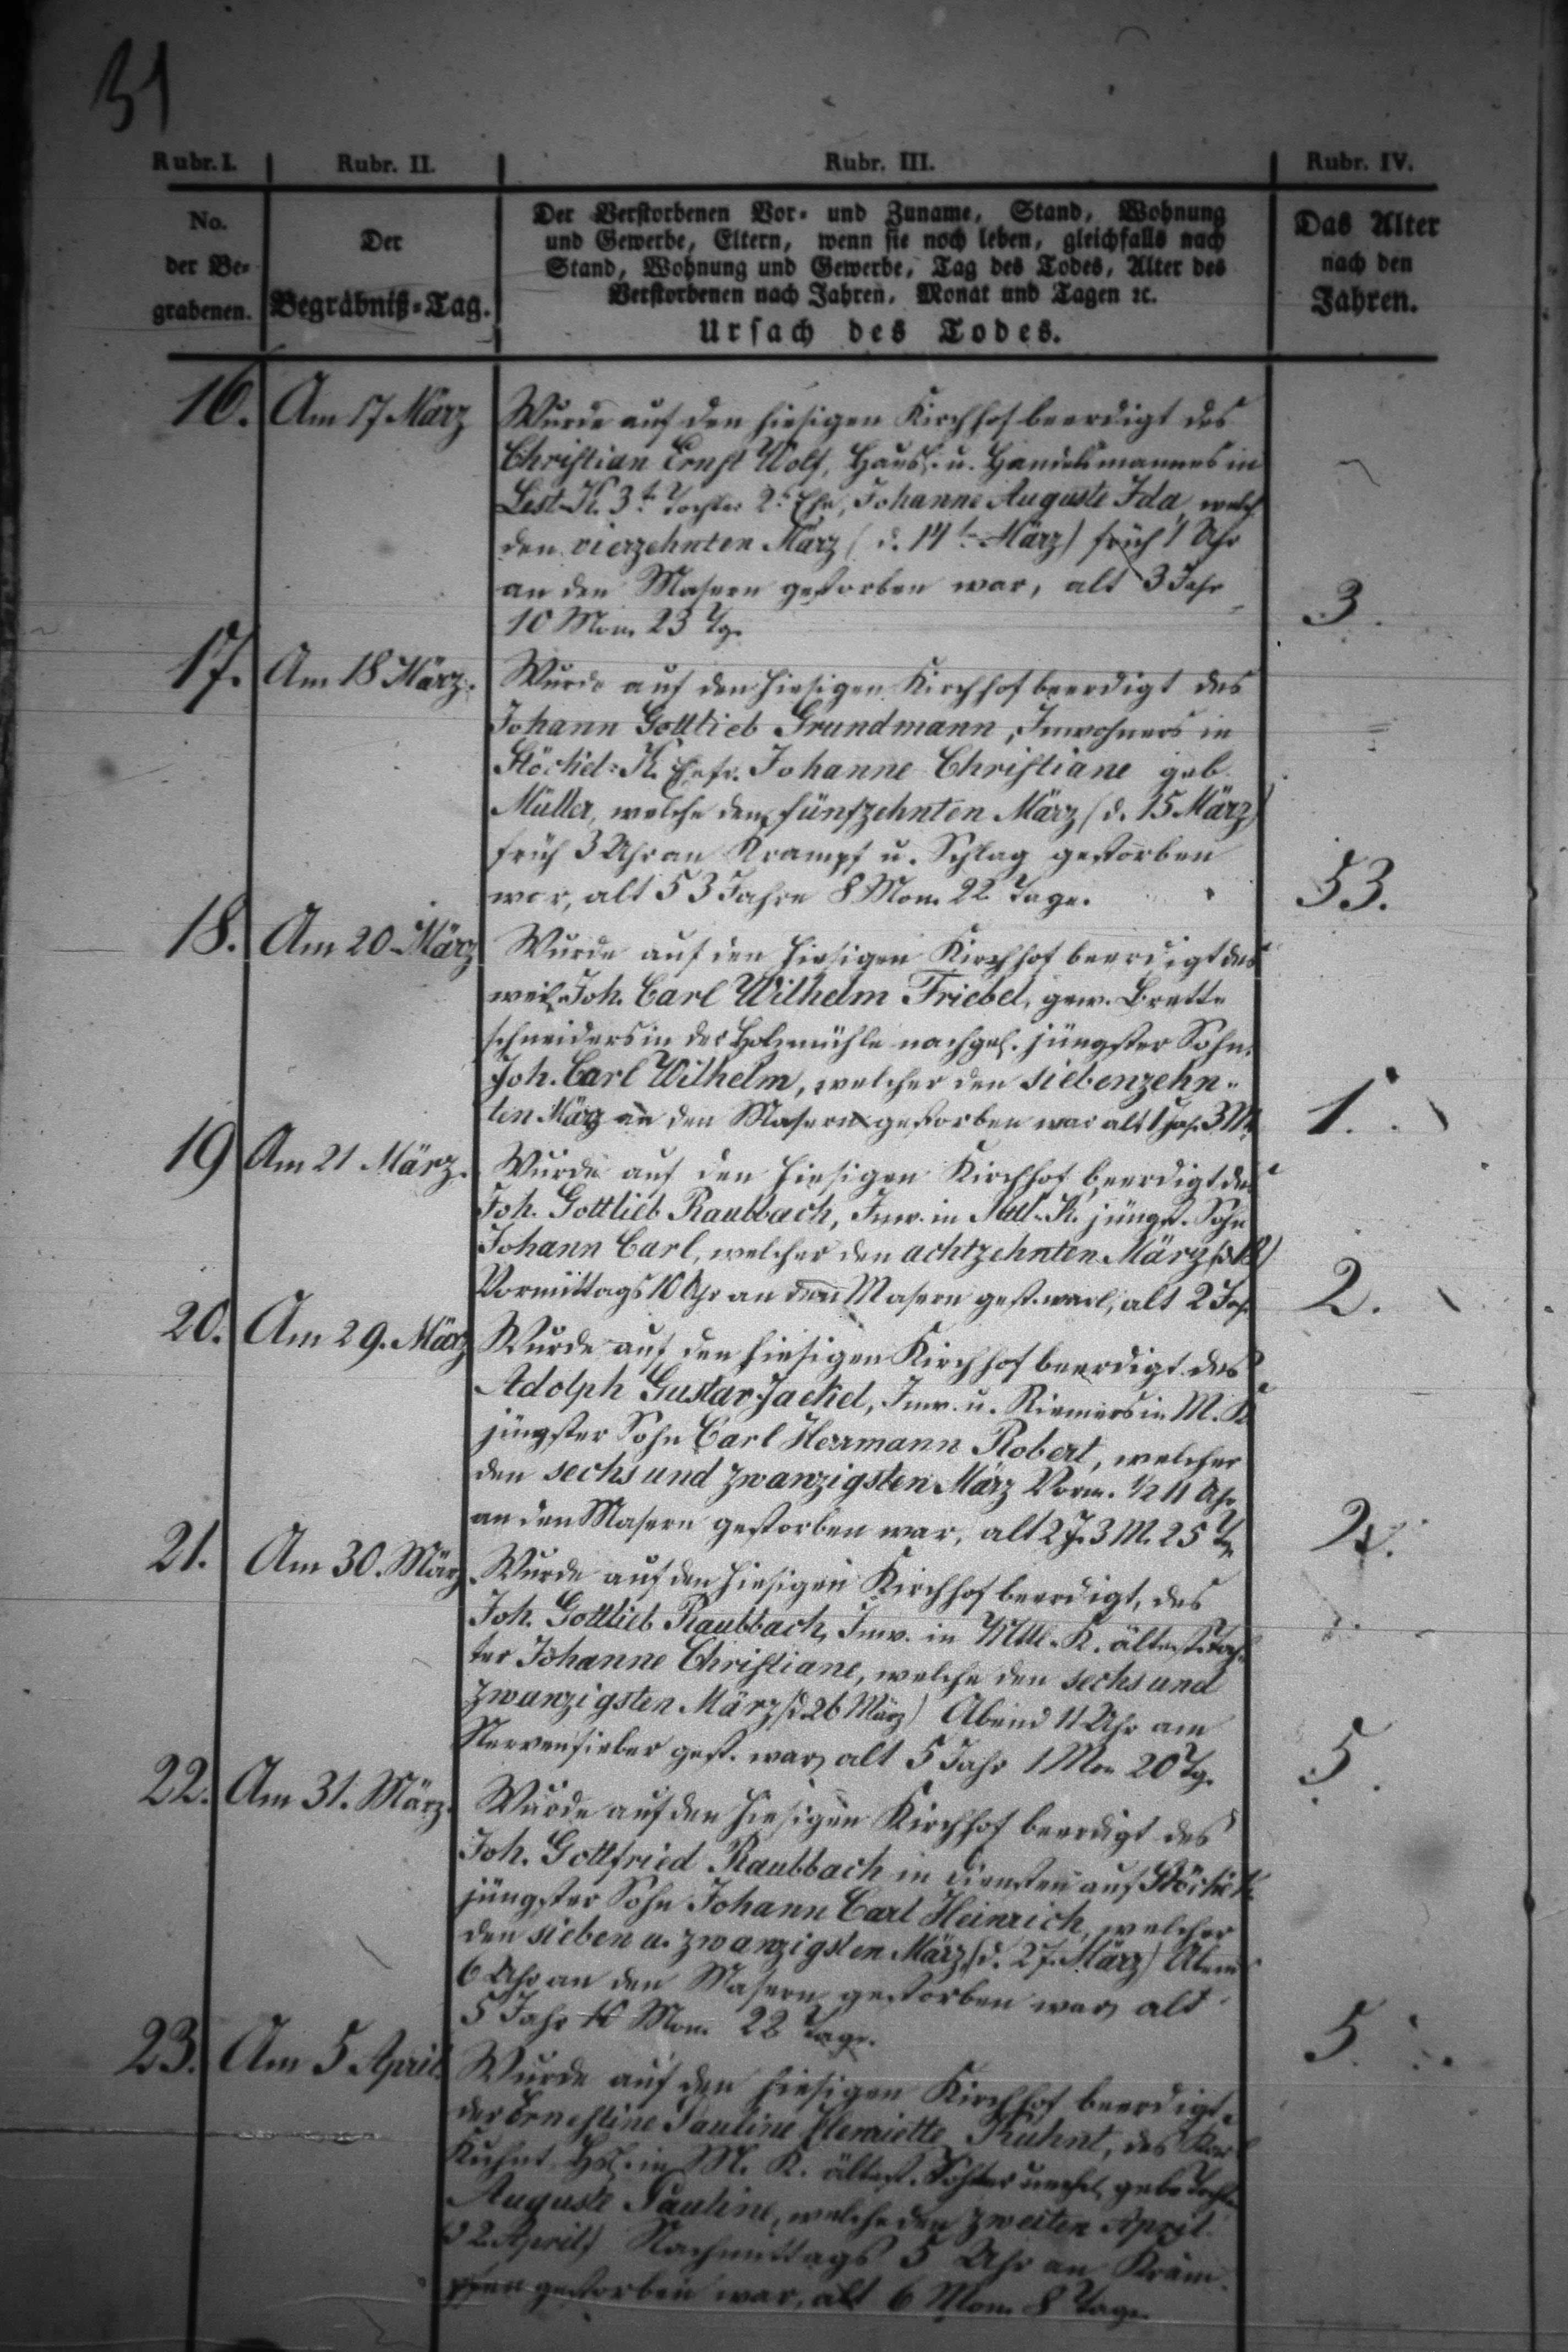 31
Rubr. I. Rubr. II. Rubr. III. Rubr. IV.
No. der Be- grabenen.
Der Begräbniß-Tag.
Der Verstorbenen Vor- und Zuname, Stand, Wohnung
und Gewerbe, Eltern, wenn sie noch leben, gleichfalls nach
Stand, Wohnung und Gewerbe, Tag des Todes, Alter des
Verstorbenen nach Jahren, Monat und Tagen ꝛc.
Ursach des Todes.
Das Alter nach den Jahren.
16. Am 17 März Wurde auf den hiesigen Kirchhof beerdigt des
Christian Ernst Wolf, Häusl. u. Handelsmannes in
Lest-K. 3t. Tochter 2r Ehe, Johanne Auguste Ida, welch
den vierzehnten März (d. 14t März) früh 1 Uhr
an den Masern gestorben war, alt 3 Jahr 3.
10 Mon. 23 Tg.
17. Am 18 März. Wurde auf den hiesigen Kirchhof beerdigt des
Johann Gottlieb Grundmann, Inwohners in
Stöckel-K. Ehefr. Johanne Christiane geb.
Müller, welche den fünfzehnten März (d. 15 März)
früh 3 Uhr an Krampf u. Schlag gestorben
war, alt 53 Jahre 8 Mon. 22 Tage. 53.
18. Am 20 März Wurde auf den hiesigen Kirchhof beerdigt des
weil. Joh. Carl Wilhelm Friebel, gew. Brett-
schneiders in der Holzmühle nachgel. jüngster Sohn.
Joh. Carl Wilhelm, welcher den siebenzehn-
ten März an den Masern gestorben war alt 1 Jah. 3 M. 1.
19 Am 21 März. Wurde auf den hiesigen Kirchhof beerdigt des
Joh. Gottlieb Raubbach, Inw. in Mttl-K. jüngst. Sohn
Johann Carl, welcher den achtzehnten März (d. 18)
Vormittags 10 Uhr an den Masern gest. war, alt 2 Jah. 2.
20. Am 29. März Wurde auf den hiesigen Kirchhof beerdigt des
Adolph Gustav Jackel, Inw. u. Riemers in M. K
jüngster Sohn Carl Herrmann Robert, welcher
den sechs und zwanzigsten März Vorm. ½ 11 Uhr
an den Masern gestorben war, alt 2 J. 3 M. 25 Tg 2.
21. Am 30. März Wurde auf den hiesigen Kirchhof beerdigt, des
Joh. Gottlieb Raubbach, Inw. in Mttl-K. ältest. Toch-
ter Johanne Christiane, welche den sechs und
zwanzigsten März (d. 26 März) Abend 11 Uhr am
Nervenfieber gest. war, alt 5 Jahr 1 Mon 20 Tg. 5.
22. Am 31. März. Wurde auf den hiesigen Kirchhof beerdigt des
Joh. Gottfried Raubbach in Diensten auf Stöckel K.
jüngster Sohn Johann Carl Heinrich, welcher
den sieben u. zwanzigsten März (d. 27. März) Abend
6 Uhr an den Masern gestorben war, alt
5 Jahr Mon. 22 Tage. 5.
23. Am 5 April. Wurde auf den hiesigen Kirchhof beerdigt
der Ernestine Pauline Henriette Kuhnt, des Karl
Kuhnt, Hsl. in M. K. ältest. Tochter unehel. geb. Tochter
Auguste Pauline, welche den zweiten April
(d 2. April) Nachmittags 5 Uhr an Kräm-
pfen gestorben war, alt 6 Mon. 8 Tage.